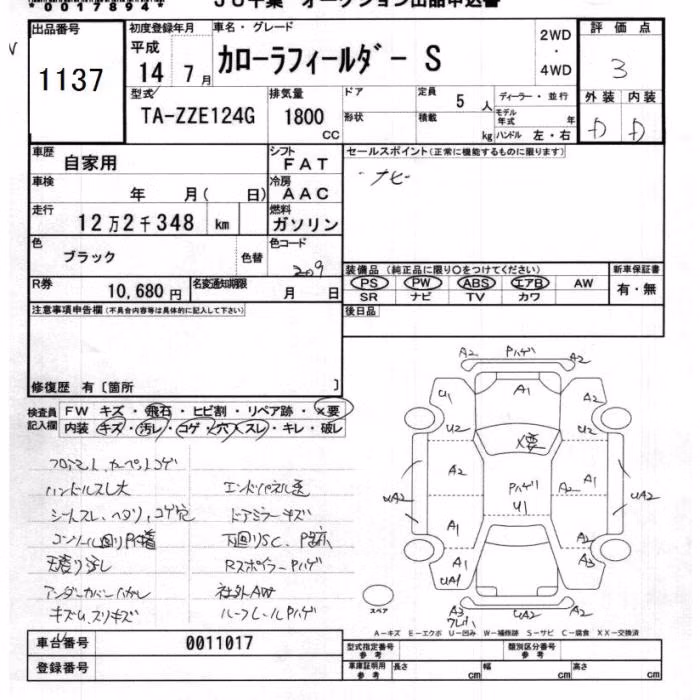 00178944
JU千葉 オークション出品申込書
出品番号 初度登録年月 車名・グレード 評価点
1137 平成14年7月 カローラフィールダー S 2WD・4WD 3
型式 排気量 ドア 定員 ディーラー・並行 外装 内装
TA-ZZE124G 1800cc 形状 積載 5人 kg モデル年式 年 ハンドル 左・右 D D
車歴 自家用 シフト FAT セールスポイント(正常に機能するものに限ります)
車検 年 月( 日) 冷房 AAC ・ナビ
走行 12万2千348 km 燃料 ガソリン
色 ブラック 色替 色コード 209
装備品(純正品に限り○をつけてください) 新車保証書
PS PW ABS エアB AW 有・無
SR ナビ TV カワ
R券 10,680円 名変通知期限 月 日
注意事項申告欄(不具合内容等は具体的に記入して下さい) 後日品
修復歴 有〔箇所 〕
検査員記入欄 FW キズ・飛石・ヒビ割・リペア跡・×要
内装 キズ・汚レ・コゲ・穴・スレ・キレ・破レ
フロアマット、カーペットコゲ
ハンドルスレ大 エンドパネル
シートスレ、ヘタリ、コゲ穴 ドアミラーキズ
下回りSC、P
天張り汚レ RスポイラーPハゲ
アンダーカバーハガレ 社外AW
キズ、スリキズ ルーフレールPハゲ
A2 Pハゲ A2
U1 A1
U2 U2
×要
A2 A1
UA2 Pハゲ UA2
U1
A1 A2
A1 A1 A3
UA1
スペア A3 UA2
ワレ
A-キズ E-エクボ U-凹み W-補修跡 S-サビ C-腐食 XX-交換済
車台番号 0011017 型式指定番号 参考 類別区分番号 参考
登録番号 車庫証明用 参考 長さ cm 幅 cm 高さ cm